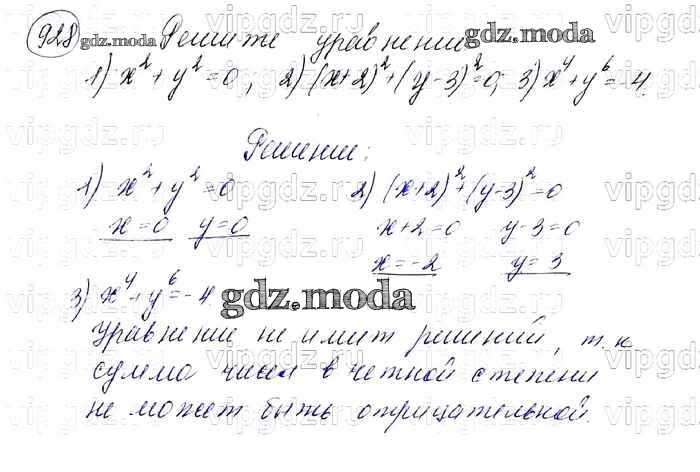 928 gdz.moda Решите уравнение gdz.moda
1) x² + y² = 0, 2) (x+2)² + (y-3)² = 0; 3) x⁴ + y⁶ = -4
Решение:
1) x² + y² = 0 2) (x+2)² + (y-3)² = 0
x = 0 y = 0 x+2=0 y-3=0
x = -2 y = 3
3) x⁴ + y⁶ = -4 gdz.moda
Уравнение не имит решений, т.к
сумма чисел в четной степени
не может быть отрицательной.